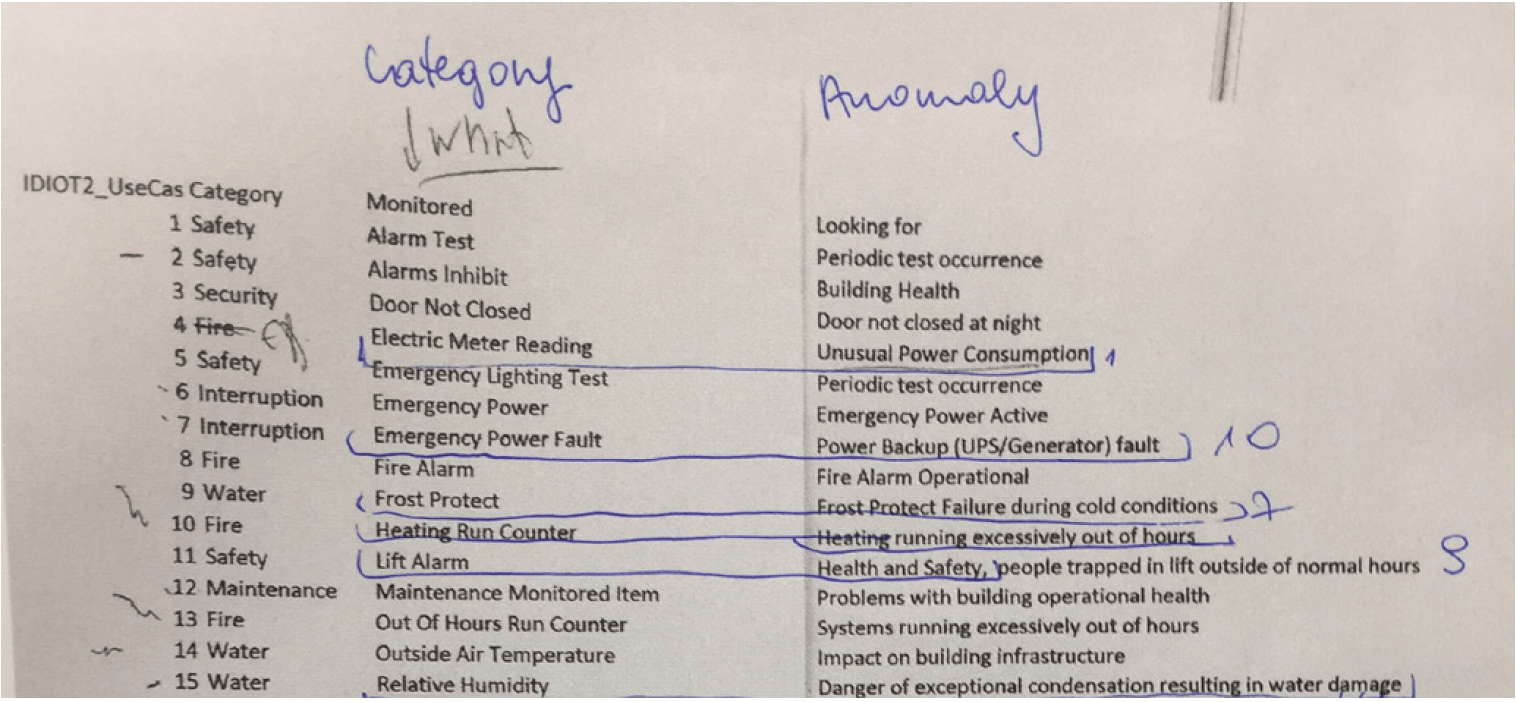 Category Anomaly
What
IDIOT2_UseCas Category Monitored Looking for
1 Safety Alarm Test Periodic test occurrence
2 Safety Alarms Inhibit Building Health
3 Security Door Not Closed Door not closed at night
4 Fire Electric Meter Reading Unusual Power Consumption 1
5 Safety Emergency Lighting Test Periodic test occurrence
6 Interruption Emergency Power Emergency Power Active
7 Interruption Emergency Power Fault Power Backup (UPS/Generator) fault 10
8 Fire Fire Alarm Fire Alarm Operational
9 Water Frost Protect Frost Protect Failure during cold conditions 7
10 Fire Heating Run Counter Heating running excessively out of hours
11 Safety Lift Alarm Health and Safety, people trapped in lift outside of normal hours
12 Maintenance Maintenance Monitored Item Problems with building operational health
13 Fire Out Of Hours Run Counter Systems running excessively out of hours
14 Water Outside Air Temperature Impact on building infrastructure
15 Water Relative Humidity Danger of exceptional condensation resulting in water damage